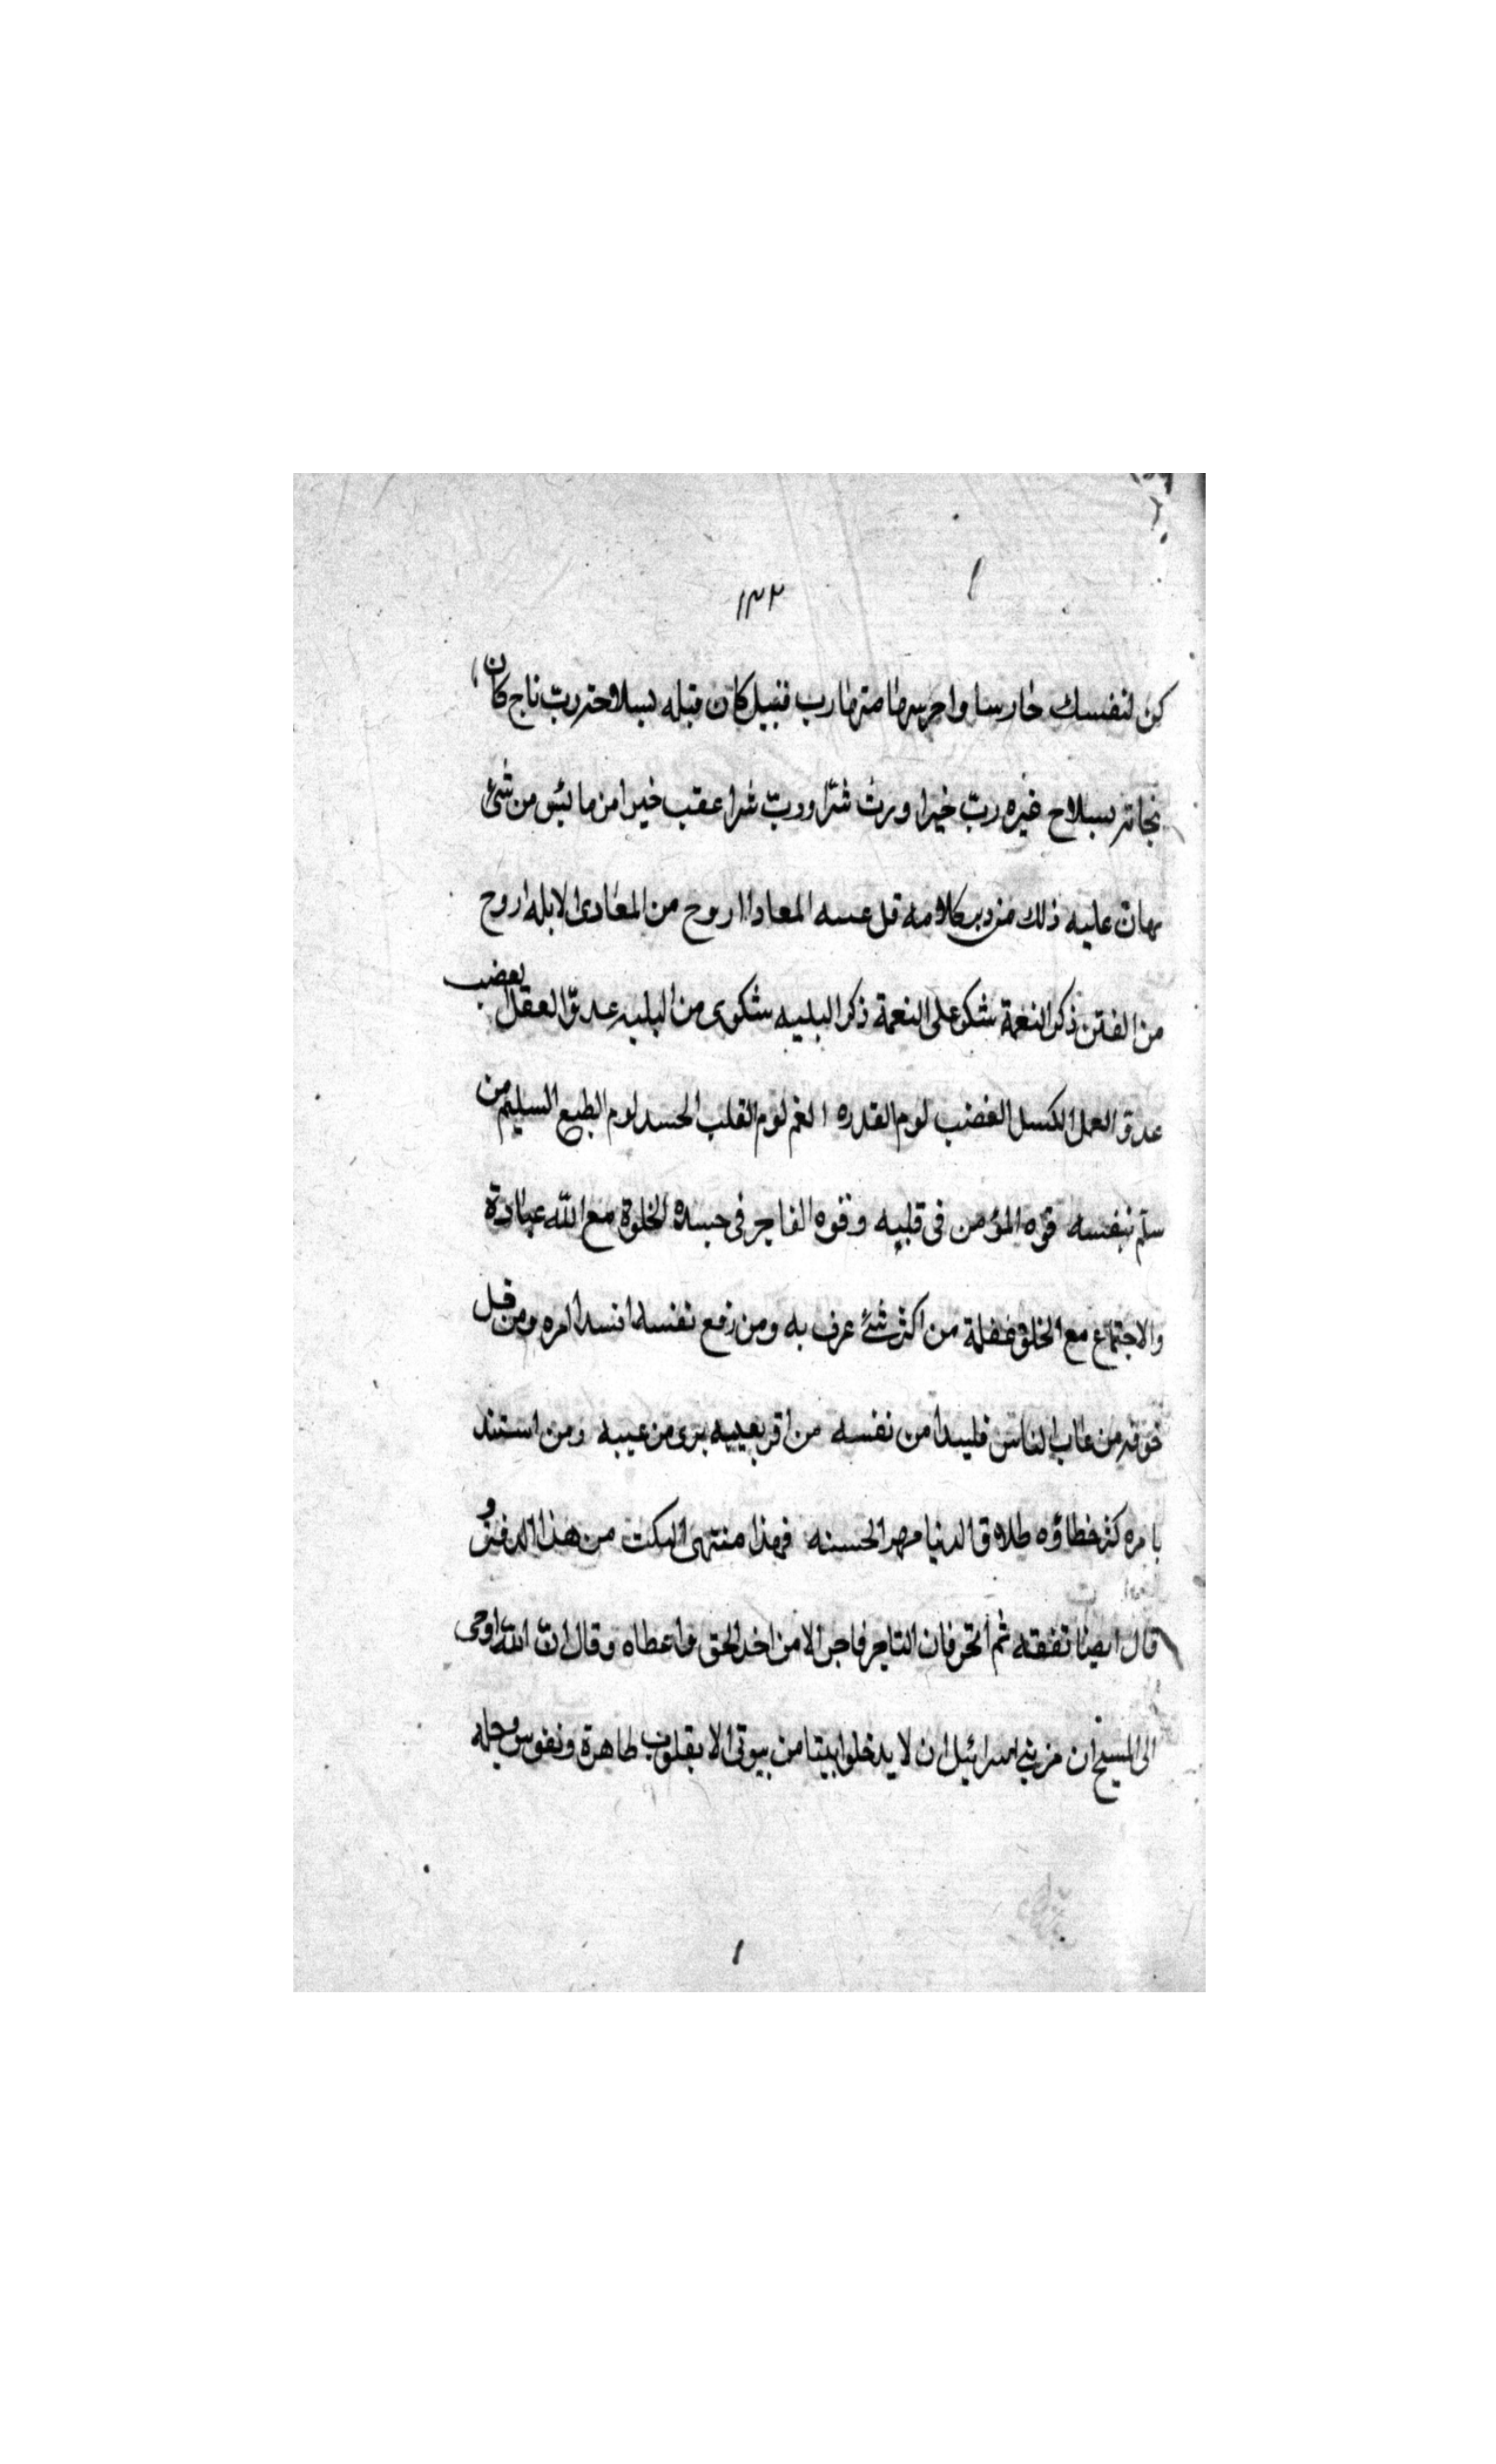 ١٣٢
كن لنفسك حارسا واحرسها صنرها رب قتيل كان قتله بسلاحه رب ناج كان
نجاته بسلاح غيره رب خيرا ورث شرا ورب شرا عقب خيرا من ما يئس من شئ
هان عليه ذلك من كلامه قل المعادا اروح من المعادى الابله اروح
من الفتن ذكر النعمة شكو على النعمة ذكر البليه شكوى من البليه عدو العقل الغضب
عدو العمل الكسل الغضب لوم القدره الغم لوم القلب الحسد لوم الطبع السليم من
سلم بنفسه قوه المؤمن فى قلبه وقوه الفاجر فى جسده الخلوة مع الله عبادة
والاجتماع مع الخلق غفلة من اكثر شئ عرف به ومن رفع نفسه افسد امره ومن قل
خوفه من عاب الناس فليبدا من نفسه من اقر بعيبه برى من عيبه ومن استند
بامره كثر خطاؤه طلاق الدنيا مهر الحسنه فهذا منتهى النكت من هذا الدفتر و
قال ايضا تفقه ثم اتجر فان التاجر فاجر الا من اخذ الحق واعطاه وقال ان الله اوحى
الى المسيح ان مر بني اسرائيل ان لا يدخلوا بيتا من بيوتى الا بقلوب طاهرة ونفوس وجله